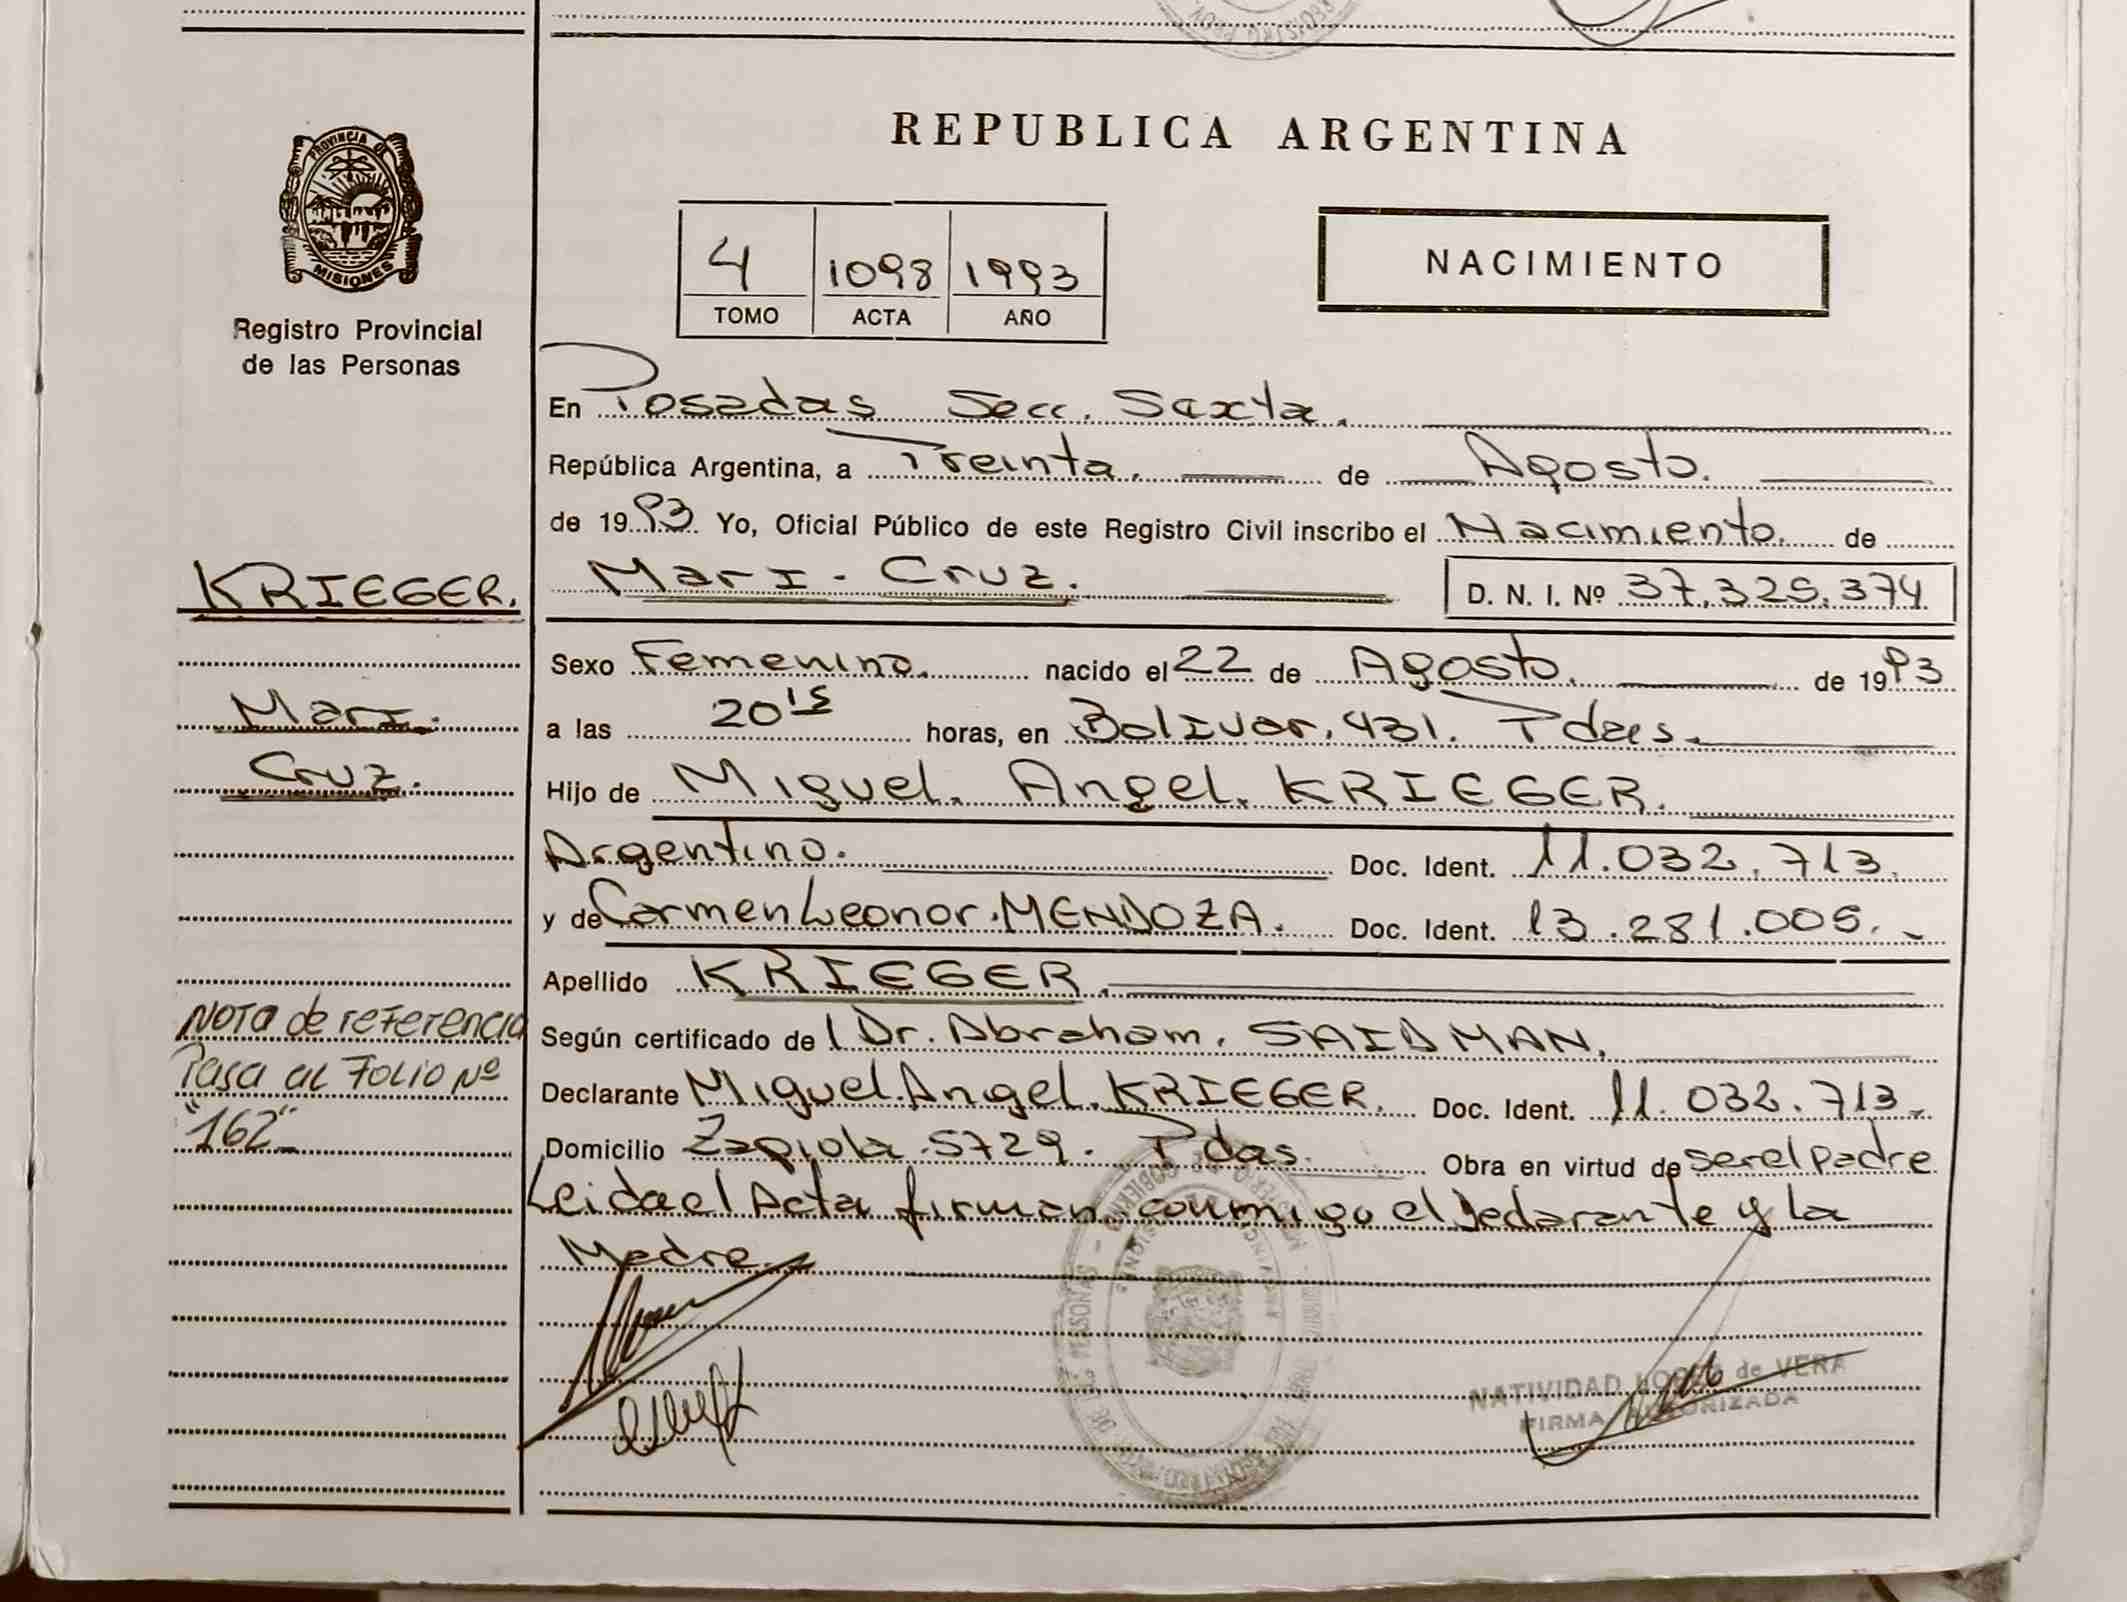 REPUBLICA ARGENTINA
PROVINCIA DE
MISIONES
Registro Provincial
de las Personas
4 1098 1993
TOMO ACTA AÑO
NACIMIENTO
En Posadas Secc. Sexta.
República Argentina, a Treinta. de Agosto.
de 1993 Yo, Oficial Público de este Registro Civil inscribo el Nacimiento. de
KRIEGER.
Mari - Cruz.
D. N. I. Nº 37.325.374
Sexo Femenino. nacido el 22 de Agosto. de 1993
Mari.
Cruz.
a las 20 15 horas, en Bolivar. 431. Pdas.
Hijo de Miguel. Angel. KRIEGER.
Argentino. Doc. Ident. 11.032.713.
y de Carmen Leonor. MENDOZA. Doc. Ident. 13.281.005.-
Apellido KRIEGER.
Nota de referencia
Pasa al Folio Nº
"162"
Según certificado de l Dr. Abraham. SAIDMAN.
Declarante Miguel. Angel. KRIEGER. Doc. Ident. 11.032.713.
Domicilio Zapiola. 5729. Pdas. Obra en virtud de ser el padre
Leida el Acta firman conmigo el declarante y la
Madre.
NATIVIDAD de VERA
FIRMA AUTORIZADA